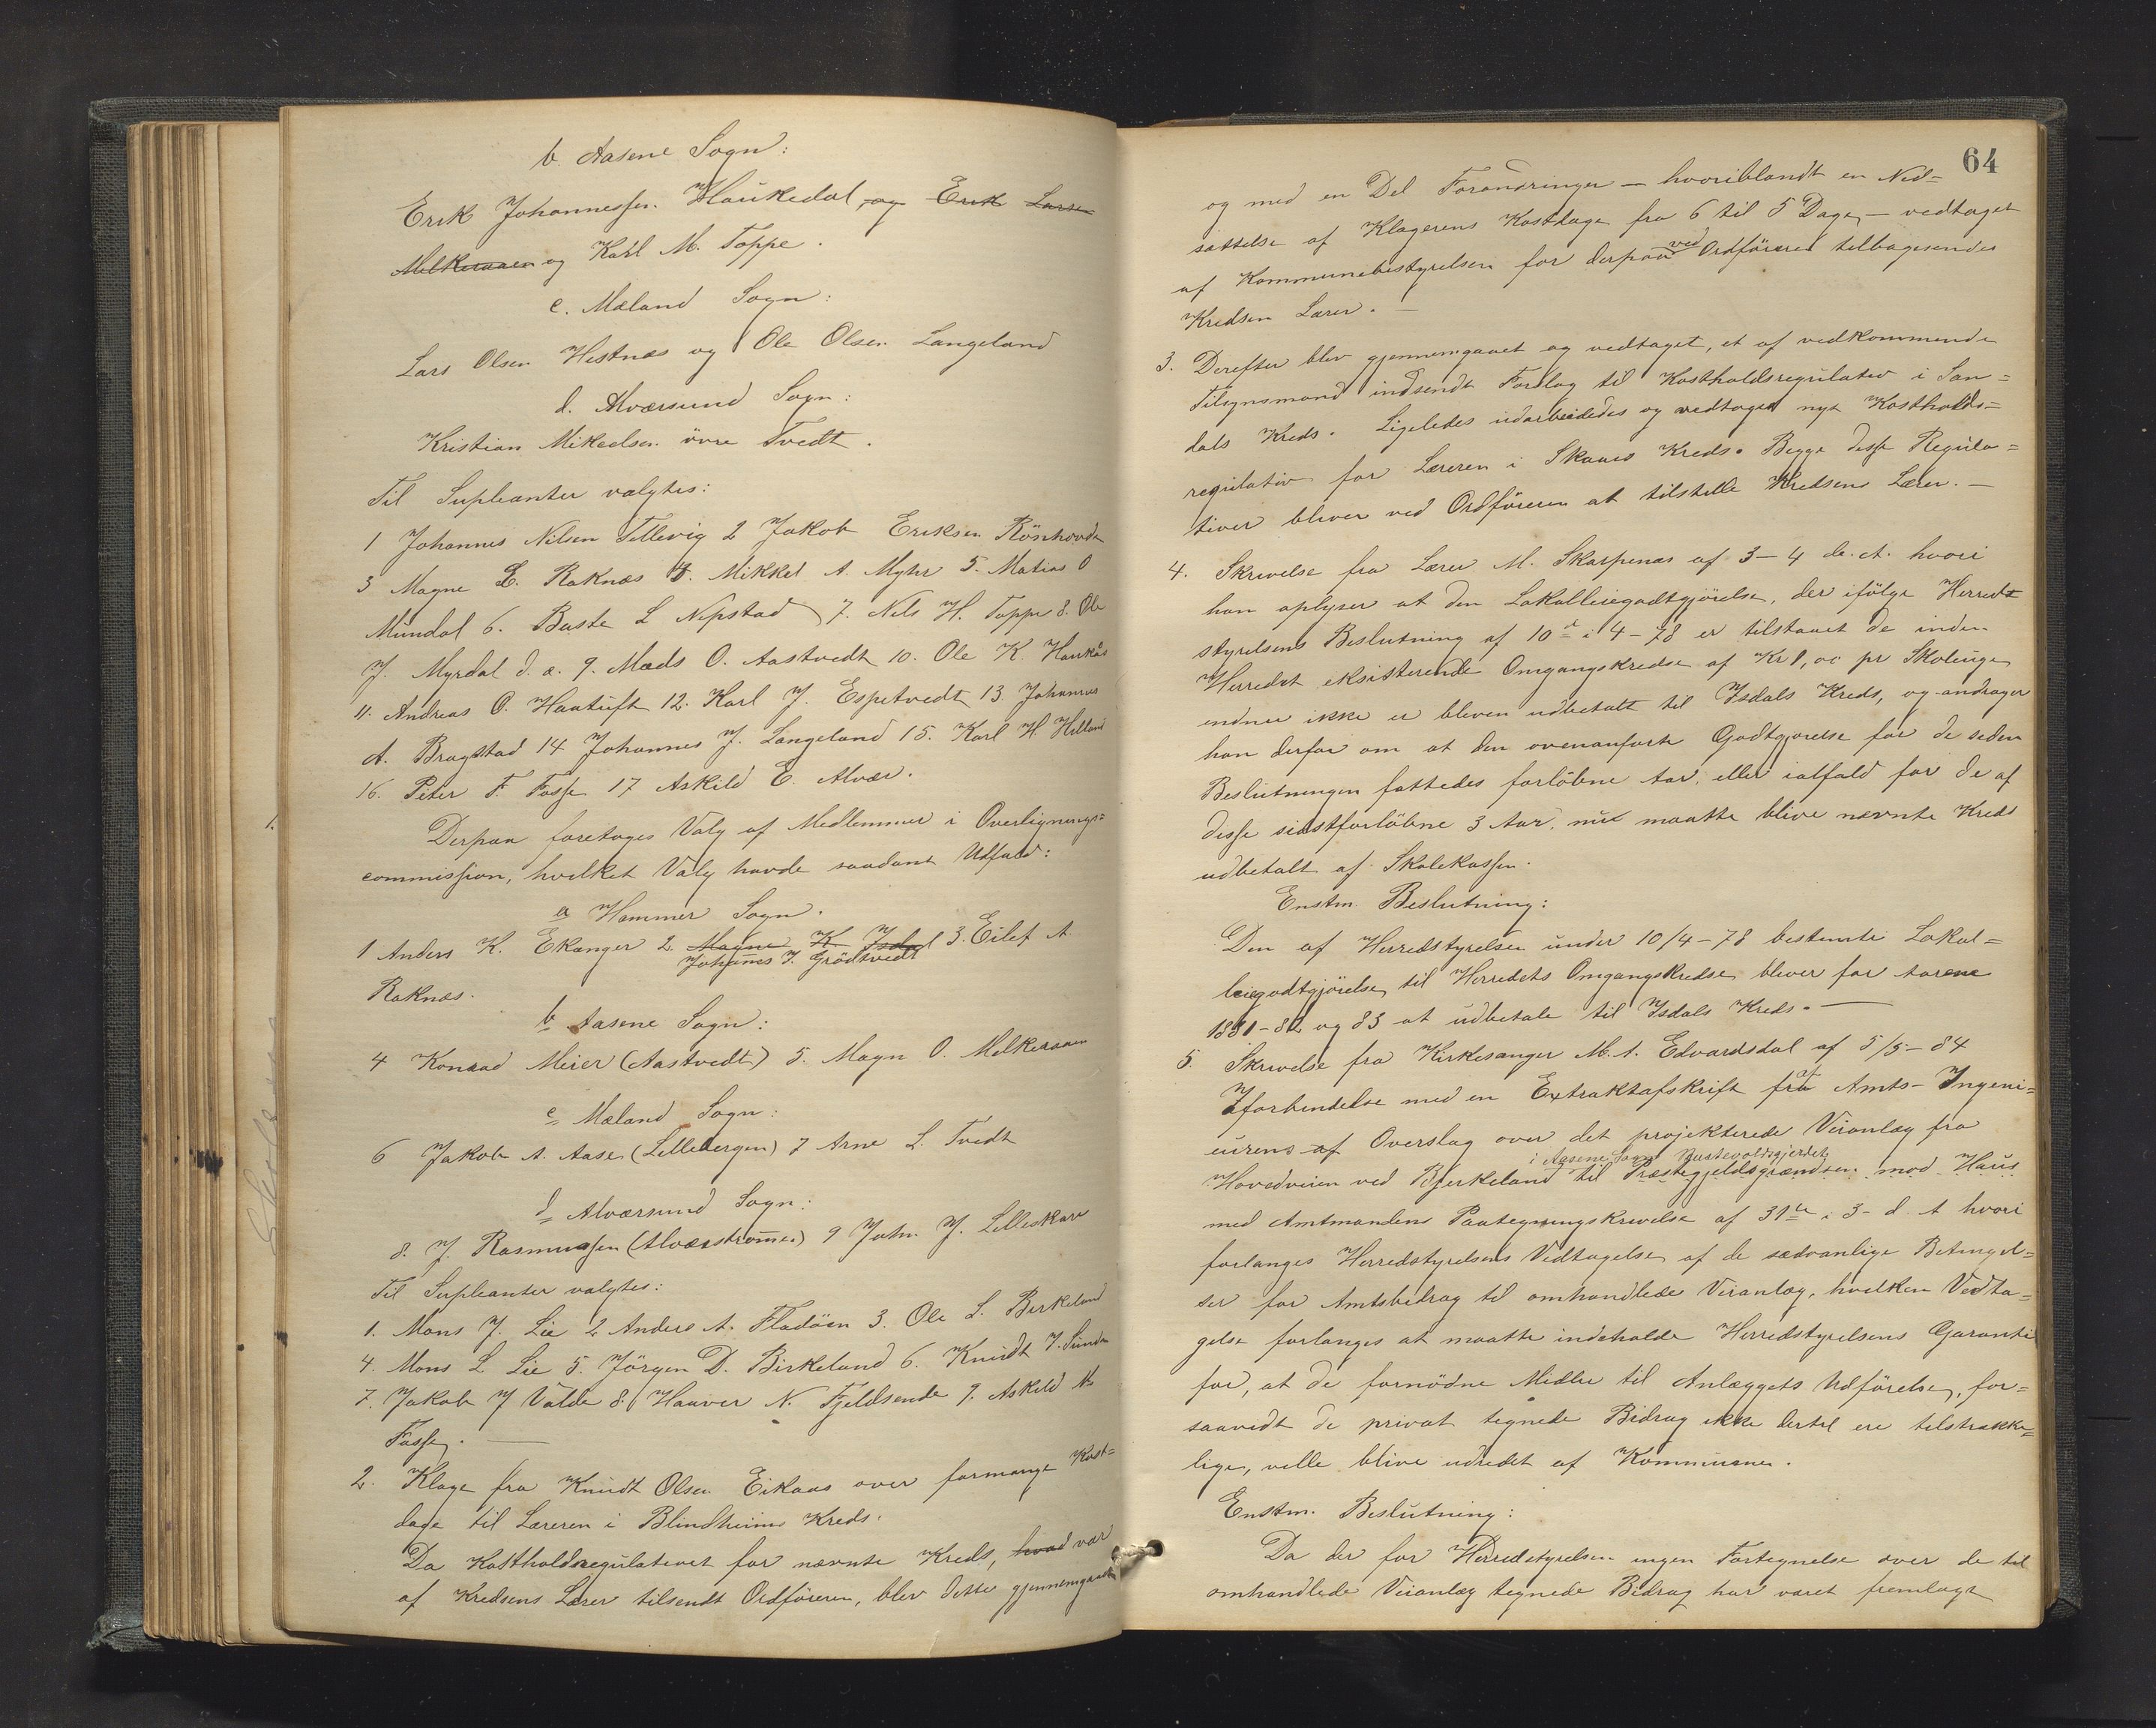 b Aasene Sogn:
Erik Johannessen Haukedal, og Erik Larsen
Melkeraaen og Karl M. Toppe.
c. Mæland Sogn:
Lars Olsen Hestnæs og Ole Olsen Langeland
d. Alværsund Sogn:
Kristian Mikkelsen övre Tvedt.
Til Supleanter valgtes:
1 Johannes Nilsen Tellevig 2 Jakob Eriksen Rönhovde
3 Magne L. Raknæs 4. Mikkel A. Myhr 5. Matias O
Mundal 6. Baste L Nepstad 7. Nils H. Toppe 8. Ole
J. Myrdal d.æ. 9. Mads O. Aastvedt 10. Ole K. Haukås
11. Andreas O. Hantuft 12. Karl J. Espetvedt 13. Johannes
A. Bragstad 14 Johannes J. Langeland 15. Karl H Hilland
16. Peter F. Fosse 17 Askild E. Alvær.
Derpaa foretoges Valg af Medlemmer i Overlignings=
commission, hvilket Valg havde saadant Udfald:
a Hammer Sogn.
1 Anders K. Ekanger 2. Magne K. Isdal 3. Eilef A.
Johannes J. Grödtvedt
Raknæs.
b Aasene Sogn:
4 Konrad Meier (Aastvedt) 5. Magn O. Melkeraaen
c Mæland Sogn:
6 Jakob A. Aase (Lillebergen) 7 Arne L. Tvedt
d Alværsund Sogn:
8. J. Rasmussen (Alværströmmen) 9 John J. Lilleskare
Til Supleanter valgtes:
1. Mons J. Lie 2 Anders A. Fladöen 3. Ole L. Birkeland
4. Mons L Lie 5. Jörgen D. Birkeland 6. Knudt J. Sunde
7. Jakob J Valde 8. Haaver N. Fjeldsende 9. Askild N
Fosse. —
2. Klage fra Knudt Olsen Eikaas over formange Kost=
dage til Læreren i Blindheims Kreds.
Da Kostholdsregulativet for nævnte Kreds, hvad var
af Kredsens Lærer tilsendt Ordföreren, blev dette gjennemgaaet
64
og med en Del Forandringer — hvoriblandt en Ned=
sættelse af Klagerens Kostdage fra 6 til 5 Dage, — vedtaget
af Kommunebestyrelsen for derpaa ved Ordföreren tilbagesendes
Kredsen Lærer. —
3. Derefter blev gjennemgaaet og vedtaget, et af vedkommende
Tilsynsmand indsendt Forslag til Kostholdsregulativ i San=
dals Kreds. Ligeledes udarbeidedes og vedtoges nyt Kostholds=
regulativ for Læreren i Skaues Kreds. Begge disse Regula=
tiver bliver ved Ordföreren at tilstille Kredsens Lærer. —
4. Skrivelse fra Lærer M. Skarpenæs af 3–4 ds. A. hvori
han oplyser at den Lokalleiegodtgjörelse, der ifölge Herreds
styrelsens Beslutning af 10de i 4–78 er tilstaaet de inden
Herredet eksisterende Omgangskredse af Kr 1,00 pr Skoleuge
endnu ikke er bleven udbetalt til Isdals Kreds, og andrager
han derfor om at den ovenanförte Godtgjörelse for de siden
Beslutningen fattedes forlöbne Aar, eller ialfald for de af
disse sidstforlöbne 3 Aar, nu maatte blive nævnte Kreds
udbetalt af Skolekassen.
Enstm. Beslutning:
Den af Herredstyrelsen under 10/4–78 bestemte Lokal=
leiegodtgjörelse til Herredets Omgangskredse bliver for Aarene
1881–82 og 83 at udbetale til Isdals Kreds. —
5. Skrivelse fra Kirkesanger M. A. Edvardsdal af 5/5–84
I forbindelse med en Extraktafskrift fra af Amts-Ingeni=
eurens af Overslag over det projekterede Veianlæg fra
i Aasene Sogn
Hovedveien ved Bjerkeland til Præstegjeldsgrændsen mod Haus
med Amtmandens Paategningskrivelse af 31te i 3– d. A hvori
forlanges Herredstyrelsens Vedtagelse af de sædvanlige Betingel=
ser for Amtsbidrag til omhandlede Veianlæg, hvilken Vedta=
gelse forlanges at maatte indeholde Herredstyrelsens Garanti
for, at de fornödne Midler til Anlæggets Udförelse, for=
saavidt de privat tegnede Bidrag ikke dertil ere tilstrække=
lige, ville blive udredet af Kommunen.
Enstm. Beslutning:
Da der for Herredstyrelsen ingen Fortegnelse over de til
omhandlede Veianlæg tegnede Bidrag har været fremlagt